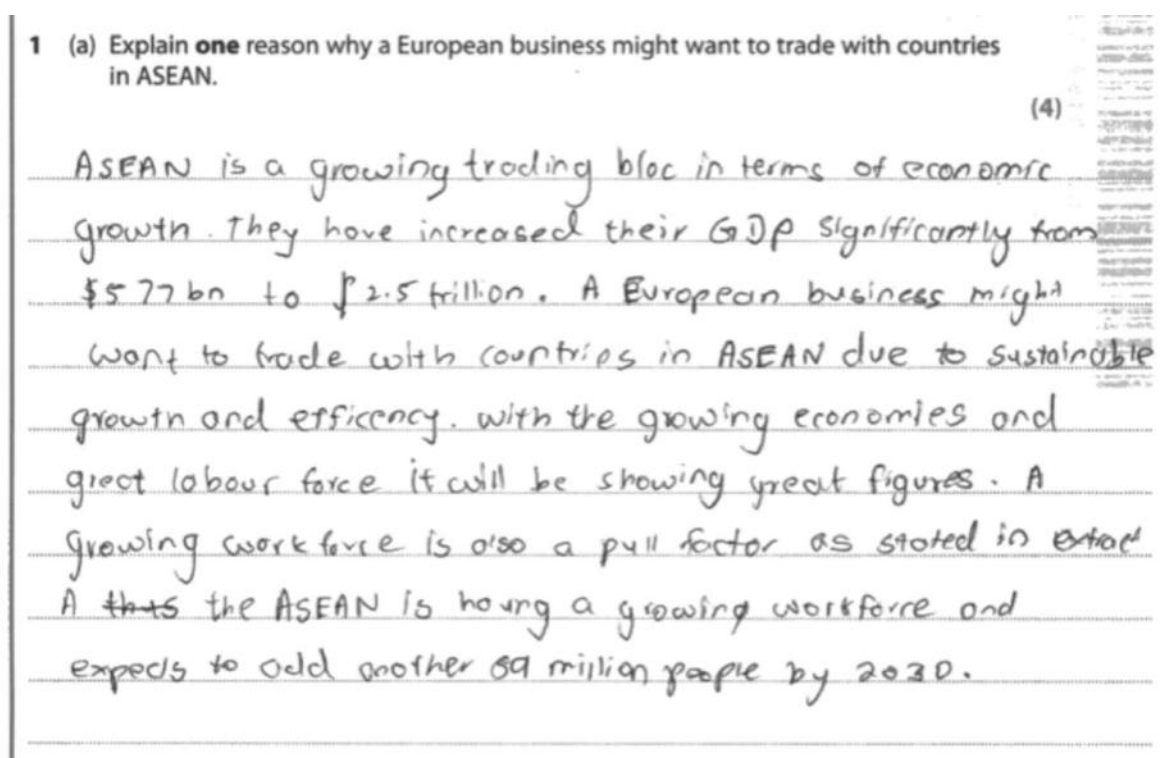 1 (a) Explain one reason why a European business might want to trade with countries
in ASEAN.
(4)
ASEAN is a growing trading bloc in terms of economic
growth. They have increased their GDP significantly from
$577bn to $2.5 trillion. A European business might
want to trade with countries in ASEAN due to sustainable
growth and efficency. with the growing economies and
great labour force it will be showing great figures. A
growing workforce is also a pull factor as stated in extract
A thus the ASEAN is having a growing workforce and
expects to add another 59 million people by 2030.